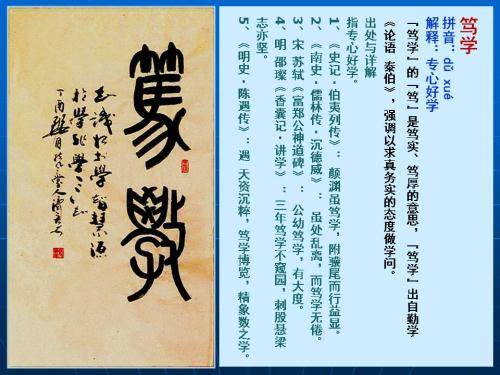 笃学
拼音：dǔ xué
解释：专心好学
『笃学』的『笃』是笃实、笃厚的意思，『笃学』出自勤学
《论语 泰伯》，强调以求真务实的态度做学问。
出处与详解
指专心好学。
1、《史记·伯夷列传》：颜渊虽笃学，附骥尾而行益显。
2、《南史·儒林传·沉德威》：虽处乱离，而笃学无倦。
3、宋 苏轼《富郑公神道碑》：公幼笃学，有大度。
4、明 邵璨《香囊记·讲学》：三年笃学不窥园，刺股悬梁
志亦坚。
5、《明史·陈遇传》：遇 天资沉粹，笃学博览，精象数之学。
篤學